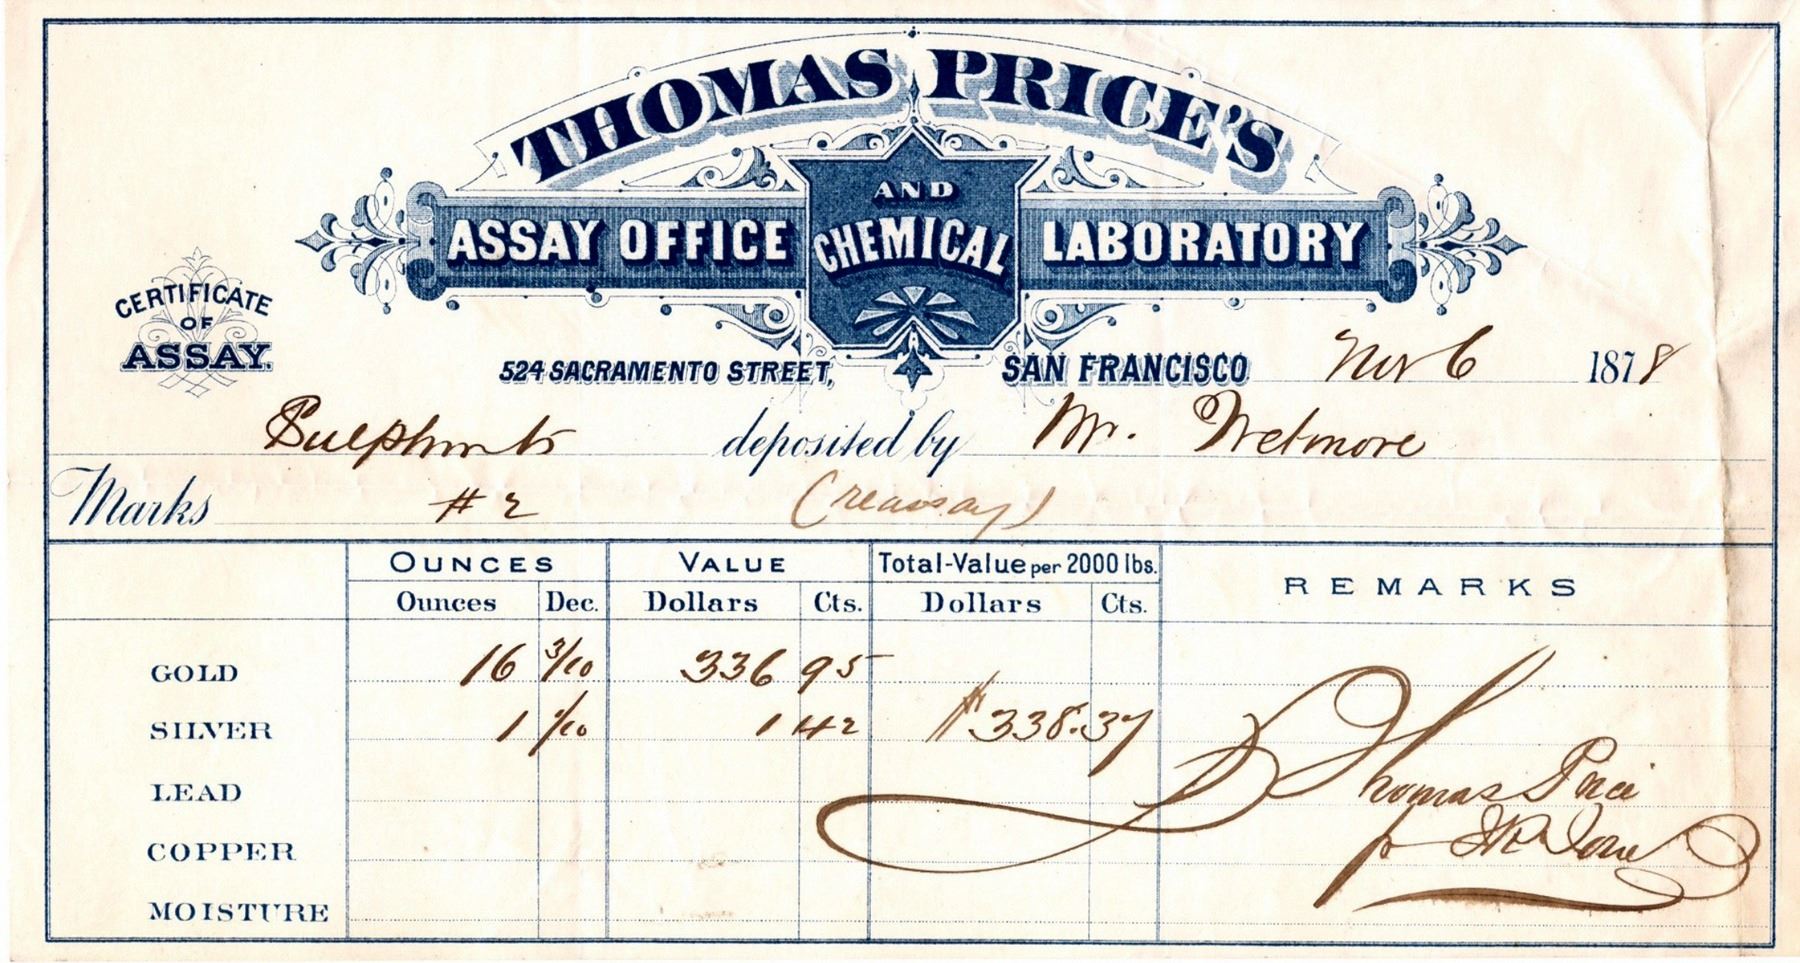 THOMAS PRICE'S
ASSAY OFFICE AND CHEMICAL LABORATORY
CERTIFICATE
OF
ASSAY.
524 SACRAMENTO STREET, SAN FRANCISCO Nov 6 1878
Sulphurets deposited by Mr. Wetmore
Marks # 2 (reassay)
OUNCES VALUE Total-Value per 2000 lbs. REMARKS
Ounces Dec. Dollars Cts. Dollars Cts.
GOLD 16 3/10 336 95
SILVER 1 1/10 1 42 $338.37
LEAD
Thomas Price
COPPER
p
MOISTURE